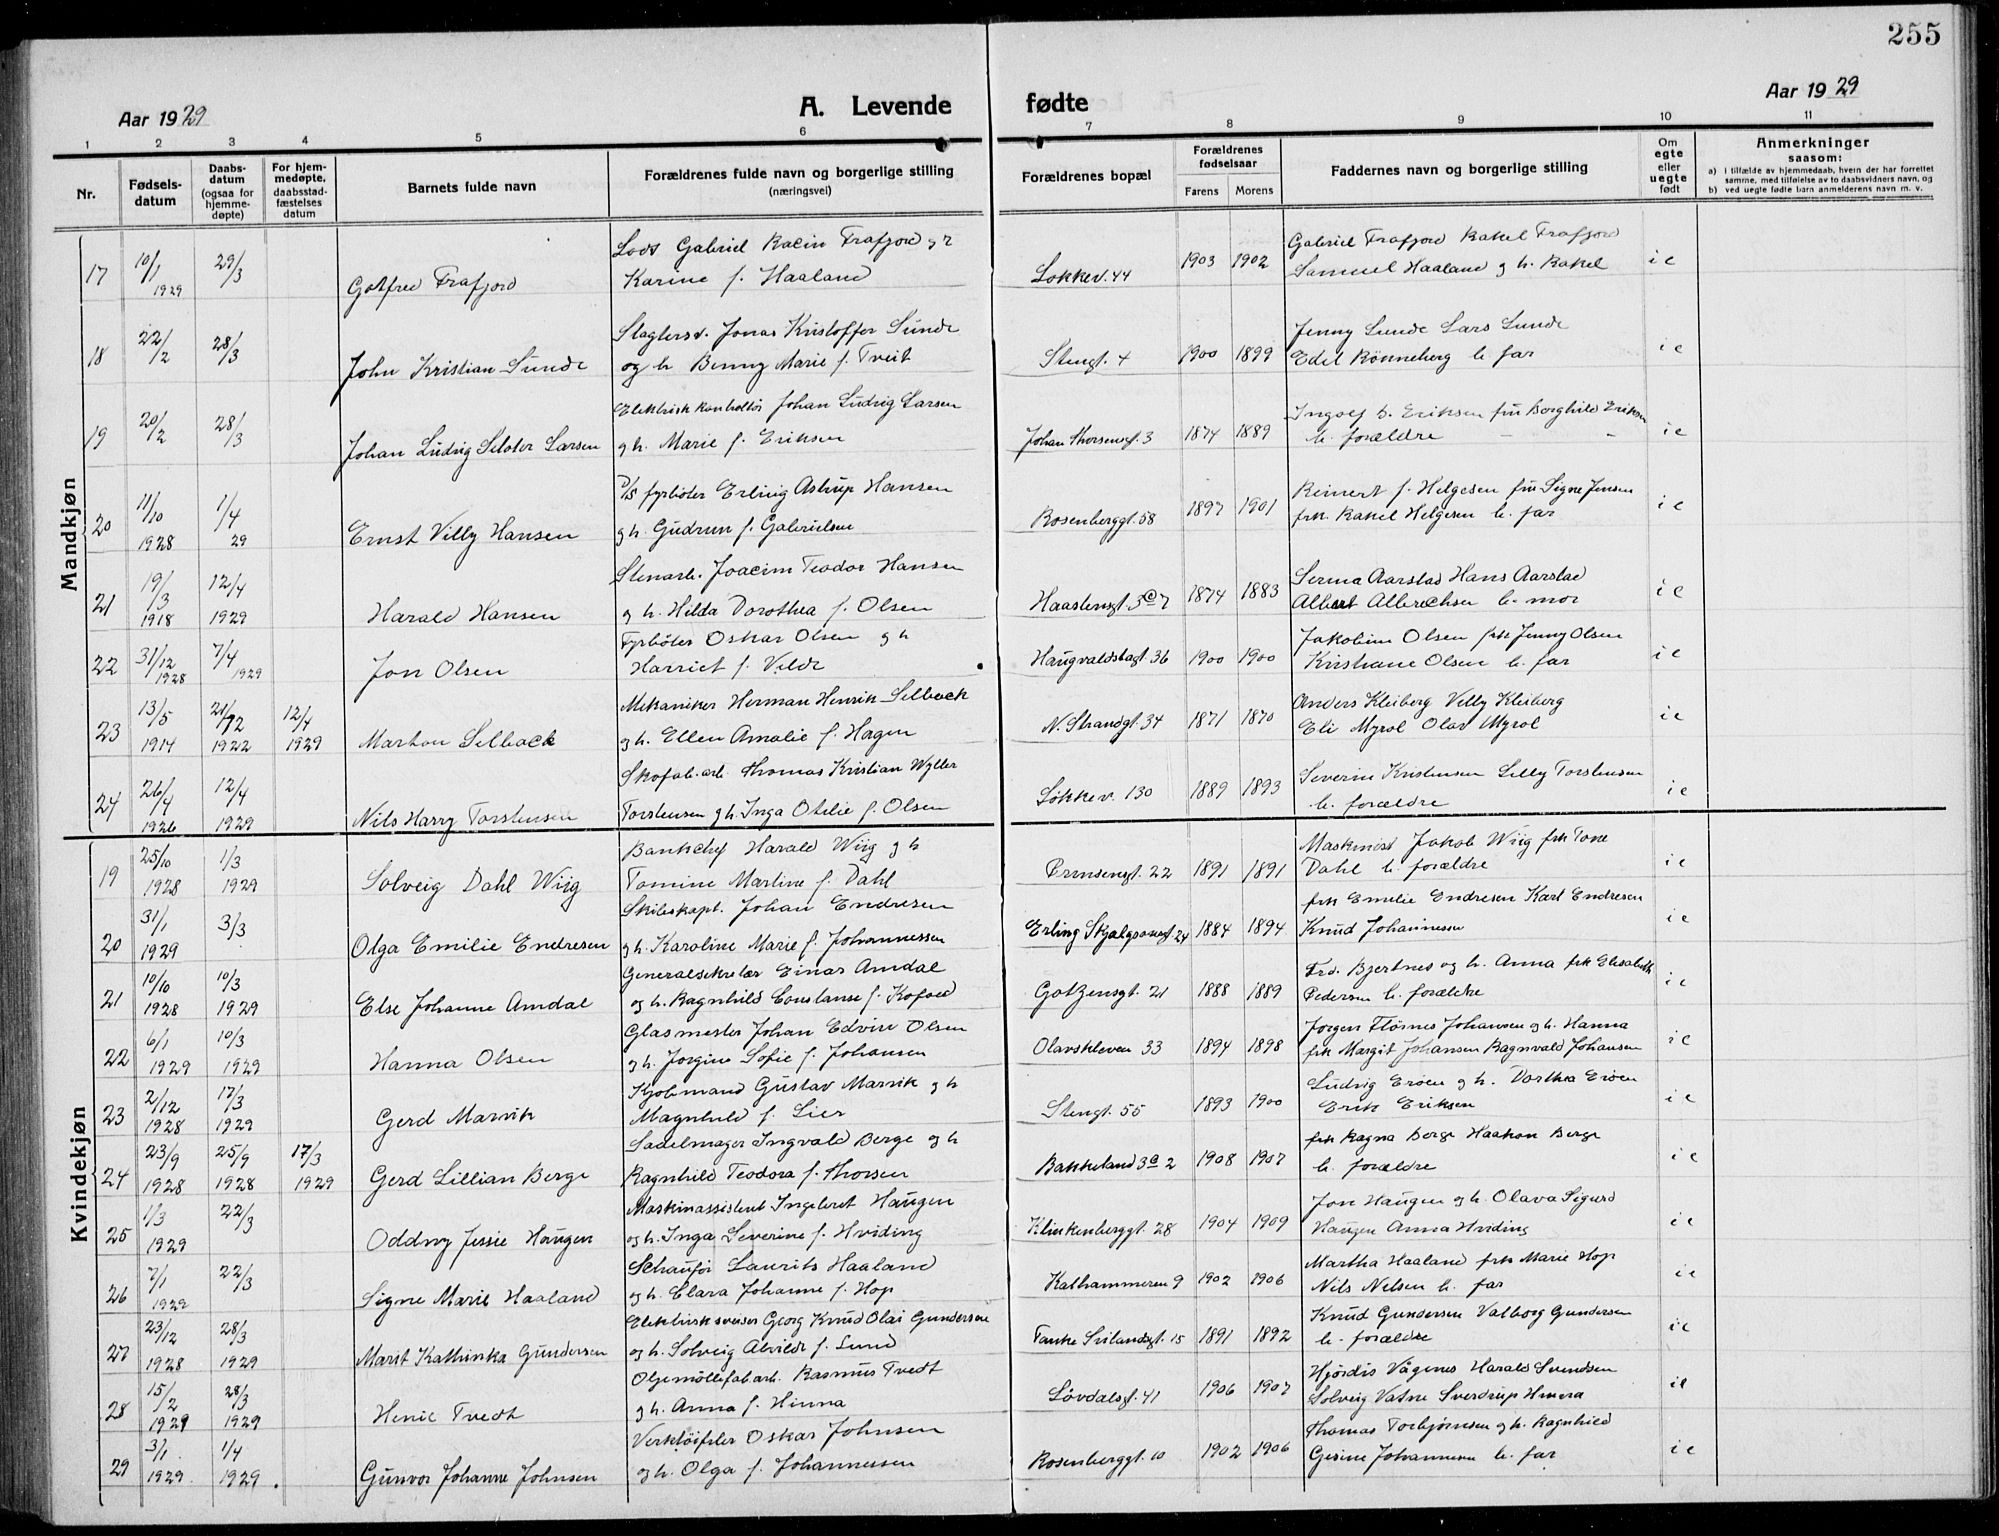 255
Aar 1929
A. Levende fødte
Aar 1929
1 2 3 4 5 6 7 8 9 10 11
Nr.
Fødsels-
datum
Daabs-
datum
(ogsaa for
hjemme-
døpte)
For hjem-
medøpte,
daabsstad-
fæstelses
datum
Barnets fulde navn
Forældrenes fulde navn og borgerlige stilling
(næringsvei)
Forældrenes bopæl
Forældrenes
fødselsaar
Farens Morens
Faddernes navn og borgerlige stilling
Om
egte
eller
uegte
født
Anmerkninger
saasom:
a) i tilfælde av hjemmedaab, hvem der har forrettet
samme, med tilføielse av to daabsvidners navn, og
b) ved uegte fødte barn anmelderens navn m. v.
Mandkjøn
Lods Gabriel Racin Trafjord og
17 10/1 1929 29/3 Gotfred Trafjord Karine f. Haaland Løkkev. 44 1903 1902 Gabriel Trafjord Rakel Trafjord
Samuel Haaland g h. Rakel i e
Slagtersv. Jonas Kristoffer Sunde
18 22/2 28/3 John Kristian Sunde og h Benny Marie f. Tveit Stengt. 4 1900 1899 Jenny Sunde Lars Sunde
Edel Rønneberg b. far i e
Elektrisk kontrollør Johan Ludvig Larsen
19 20/2 28/3 Johan Ludvig Larsen gh. Marie f. Eriksen Johan Thorsensgt. 3 1874 1889 Eriksen fru Borghild Eriksen
b. forældre i e
fyrbøter Erling Astrup Hansen
20 11/10 1928 1/4 29 Ernst Villy Hansen gh. Gudrun f. Gabrielsen Rosenberggt. 58 1897 1901 Reinert f. Helgesen fru Signe Jensen
frk. Rakel Helgesen b. far i e
Stenarb. Joacim Teodor Hansen
21 19/3 1918 12/4 1929 Harald Hansen g h. Hilda Dorothea f. Olsen 1874 1883 Serina Aarstad Hans Aarstad
Albert Albrechsen b. mor i e
Fyrbøter Oskar Olsen g h
22 31/12 1928 7/4 1929 Jon Olsen Harriet f. Velde Haugvaldstagt. 36 1900 1900 Jakobine Olsen frk Jenny Olsen
Kristiane Olsen b. far i e
Mekaniker Herman Henrik Selback
23 13/5 1914 21/12 1922 12/4 1929 Marton Selback gh. Ellen Amalie f. Hagen N. Strandgt. 34 1871 1870 Anders Kleiberg Villy Kleiberg
Eli Myrol Olav Myrol i e
Skofab.arb. Thomas Kristian Wyller
24 26/4 1926 12/4 1929 Nils Harry Torstensen Torstensen gh. Inga Otilie f. Olsen Løkkev. 130 1889 1893 Severin Kristensen Lilly Torstensen
b. forældre i e
Kvindekjøn
Bankchef Harald Wiig g h
19 25/10 1928 1/3 1929 Solveig Dahl Wiig Tomine Martine f. Dahl Prinsensgt. 22 1891 1891 Maskinist Jakob Wiig frk Tone
Dahl b. forældre i e
Skibskapt. Johan Endresen
20 31/1 1929 3/3 Olga Emilie Endresen gh. Karoline Marie f. Johannessen Erling Skjalgsonsgt 24 1884 1894 frk Emilie Endresen Karl Endresen
Knud Johannesen i e
Generalsekretær Einar Amdal
21 10/10 1928 10/3 1929 Else Johanne Amdal og h. Ragnhild Constanse f. Kofoed Gotzensgt. 21 1888 1889 Frd. Bjertnes og h. Anna frk Elisabeth
Pedersen b. forældre i e
Glasmester Johan Edvin Olsen
22 6/1 1929 10/3 1929 Hanna Olsen gh. Jorgine Sofie f. Johansen Olavskleven 33 1894 1898 Jørgen Flørnes Johansen gh. Hanna
frk Margit Johansen Ragnvald Johansen i e
Kjøbmand Gustav Marvik gh
23 2/12 1928 17/3 1929 Gerd Marvik Magnhild f. Lier Stengt. 55 1893 1900 Ludvig Erøen g h. Dorthea Erøen
Erik Eriksen i e
Sadelmager Ingvald Berge g h
24 23/9 1928 25/9 1928 17/3 1929 Gerd Lillian Berge Ragnhild Teodora f. Thorsen Bakkeland 3a 2 1908 1907 frk Ragna Berge Haakon Berge
b. forældre i e
Maskinassistent Ingebret Haugen
25 1/3 1929 22/3 Oddny Jessie Haugen og h. Inga Severine f. Hviding Klinkenberggt. 28 1904 1909 Jon Haugen g h. Olava Sigurd
Haugen Anna Hviding i e
Schauför Laurits Haaland
26 7/1 1929 22/3 Signe Marie Haaland og h. Clara Johanne f. Hop Kathammeren 9 1902 1906 Martha Haaland frk Marie Hop
Nils Nelsen b. far i e
Elektrisk sveiser Georg Knud Olai Gundersen
27 23/12 1928 28/3 1929 Marit Kathinka Gundersen og h. Solveig Alvilde f. Lund Tanke Svilandsgt. 15 1891 1892 Knud Gundersen Valborg Gundersen
b. forældre i e
Oljemøllefabarb. Rasmus Tvedt
28 15/2 1929 28/3 1929 Henie Tvedt gh. Anna f. Hinna Løvdalsgt. 41 1906 1907 Hjørdis Vågenes Harald Svendsen
Solveig Vatne Sverdrup Hinna i e
Verktøifiler Oskar Johnsen
29 3/1 1929 1/4 1929 Gunvor Johanne Johnsen og h. Olga f. Johannessen Rosenberggt. 10 1902 1906 Thomas Torbjørnsen g h. Ragnhild
Gesine Johannesen b. far i e